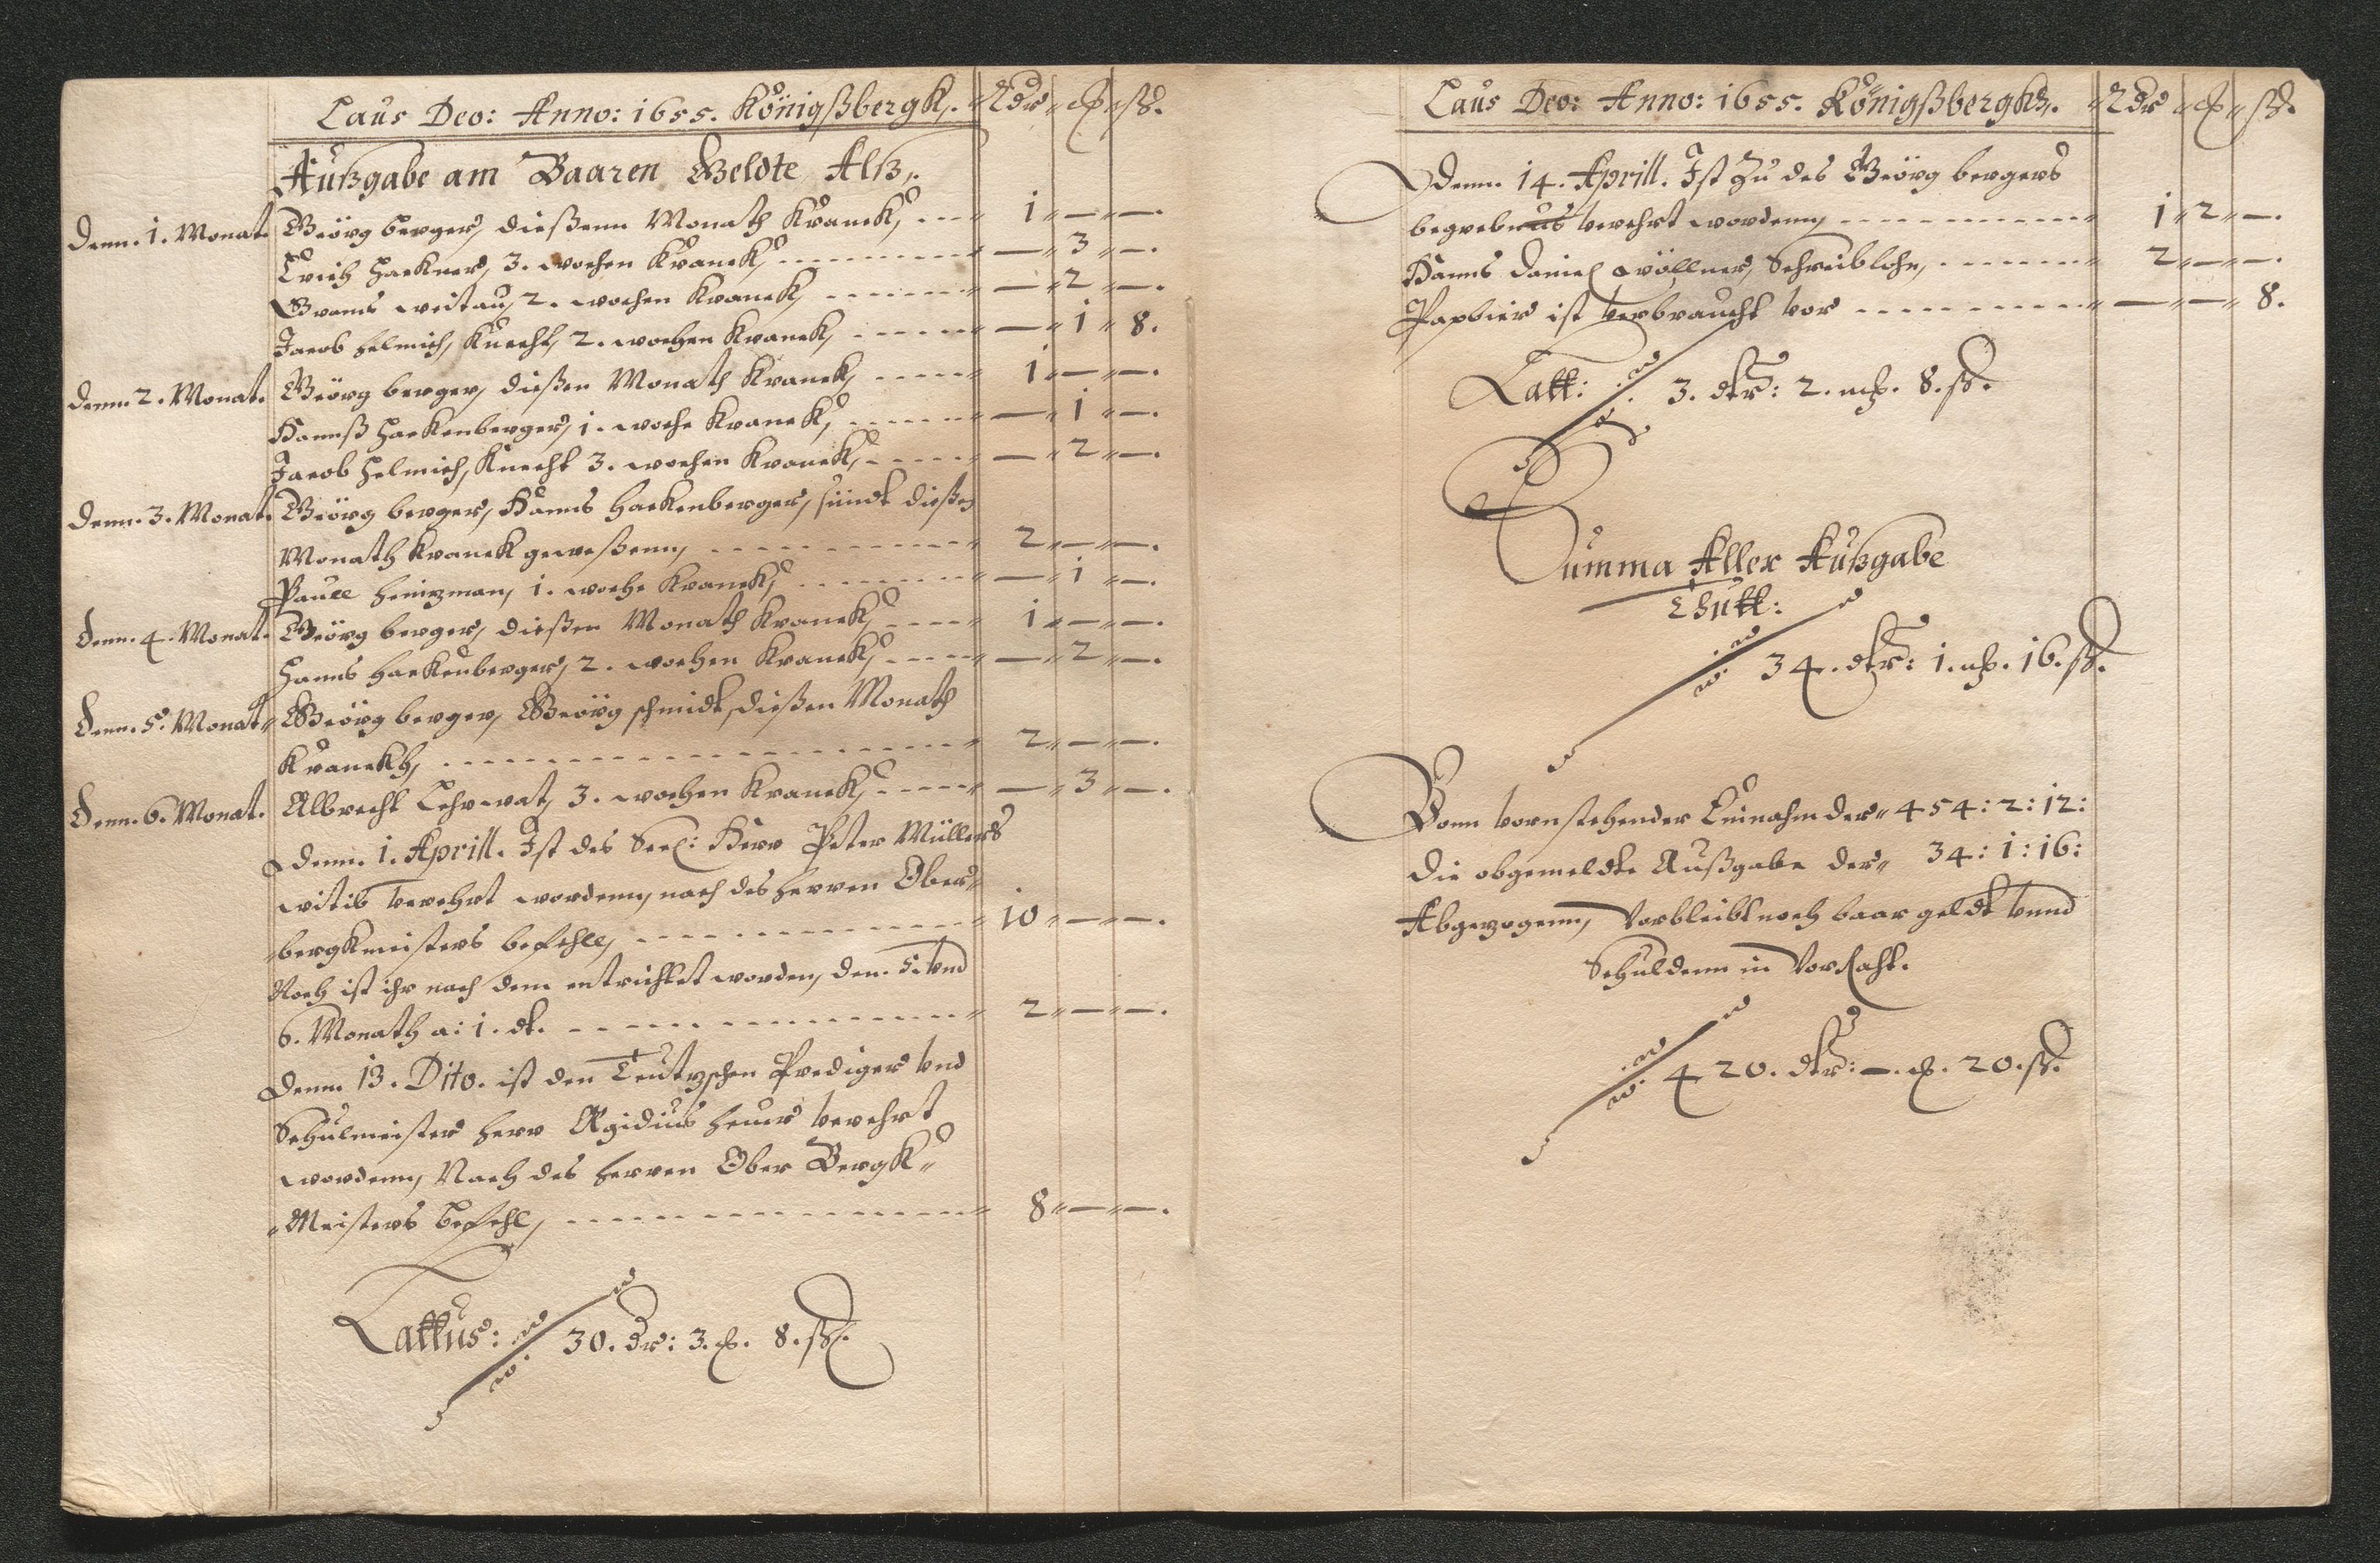 Laus Deo: Anno: 1655. Königßbergk,. Rdr. ß.
Außgabe am Baaren Geldte, Alß,.
Denn. 1. Monat. Geörg berger, dießenn Monath Kranck, 1 — —.
Erich Hackner, 3. wochen Kranck, — 3 —.
2. wochen Kranck, — 2 —.
Jacob Helmich, Knecht, 2. wochen Kranck, — 1 8.
Denn. 2. Monat. Geörg berger, dießen Monath Kranck, 1 — —.
Hannß Hackenberger, 1. woche Kranck, — 1 —.
Jacob Helmich, Knecht 3. wochen Kranck, — 2 —.
Denn. 3. Monat. Geörg berger, Hanns Hackenberger, sündt dießen
Monath Kranck geweßenn, 2 — —.
Paull Heintzman, 1. woche Kranck, — 1 —.
Denn. 4. Monat. Geörg berger, dießen Monath Kranck, 1 — —.
Hanns Hackenberger, 2. wochen Kranck, — 2 —.
Denn. 5. Monat. Geörg berger, Geörg schmidt, dießen Monath
Kranckh, 2 — —.
Denn. 6. Monat. Albrecht 3. wochen Kranck, — 3 —.
Denn. 1. Aprill. Ist des Seel: Herr Peter Müllers
witib verehrt wordenn, nach des Herren Ober-
bergkmeisters befehll, 10 — —.
Noch ist ihr nach dem entrichtet worden, den. 5. vnd
6. Monath a: 1. dt. 2 — —.
Denn. 13. Dito. ist den Teutzschen Prediger vnd
Schulmeister Herr Ægidius verehrt
wordenn, Nach des Herren Ober Bergk-
Meisters Befehl, 8 — —.
Lattus: 30. dr: 3. 8. ß.
Laus Deo: Anno: 1655. Königßbergk. Rdr ß.
Denn. 14. Aprill. Ist Zu des Geörg bergers
begrebnus verehrt wordenn, 1 2 —.
Hanns Daniel Wöllner, Schreiblohn, 2 — —.
Pappier ist verbraucht vor — — 8.
Latt: 3. dtr: 2. 8. ß.
Summa Aller Außgabe
Thutt:
34. dtr: 1. 16. ß.
Vonn vornstehender Einahm der 454: 2: 12:
Die obgemeldte Außgabe der 34: 1: 16:
Abgezogenn, Vorbleibt noch baar geldt vnnd
Schuldenn in Vorraht.
420. dtr: —. 20. ß.